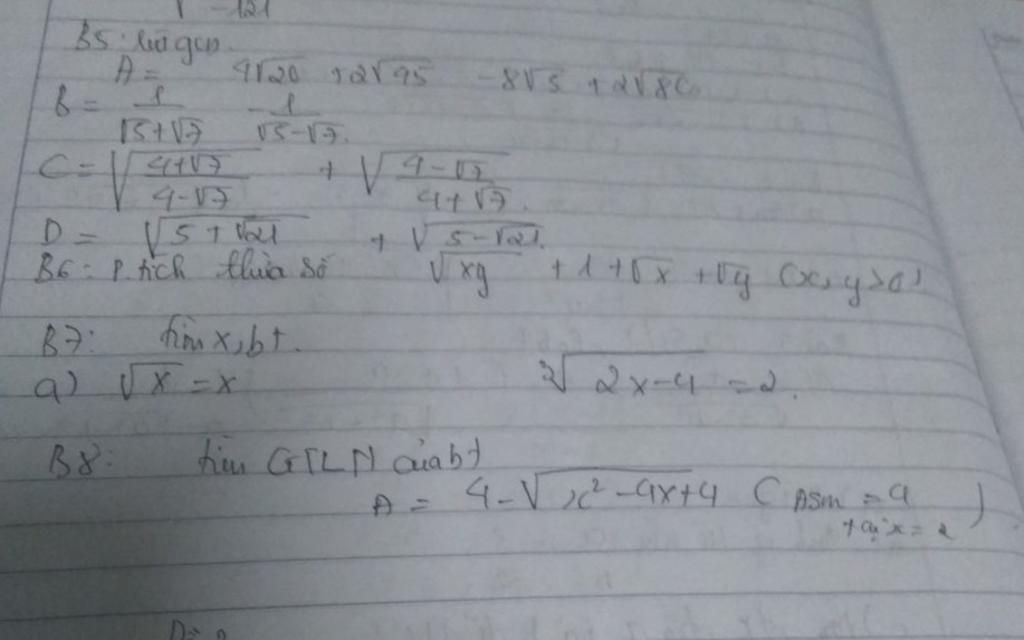 √-121
B5: Rút gọn.
A = 4√20 + 2√45 - 8√5 + 2√80
B = 1/(√5+√7) - 1/(√5-√7).
C = √((4+√7)/(4-√7)) + √((4-√7)/(4+√7)).
D = √(5+√21) + √(5-√21).
B6: P.tích thừa số √xy + 1 + √x + √y (x,y>0)
B7: tìm x, bt.
a) √x = x ∛(2x-4) = 2.
B8: tìm GTLN của bt
A = 4 - √(x²-4x+4) ( = 4
tại x = 2 )